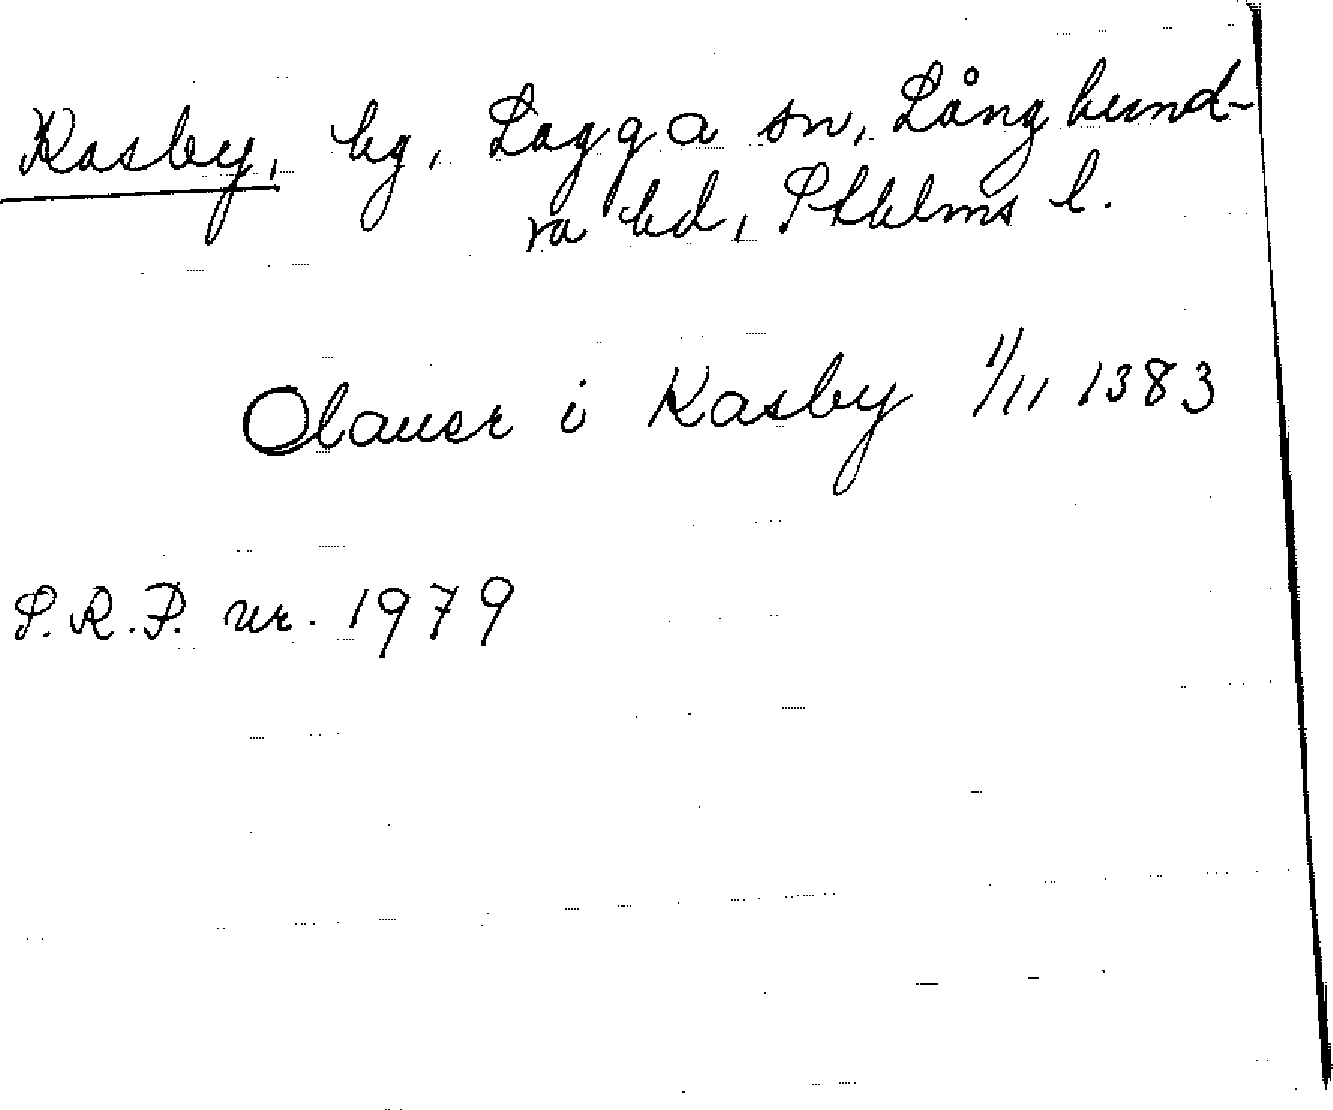 Kasby, by, Lagga sn, Långhund-
ra hd, Sthlms l.
Olauer i Kasby 1/11 1383
S.R.P. nr. 1979